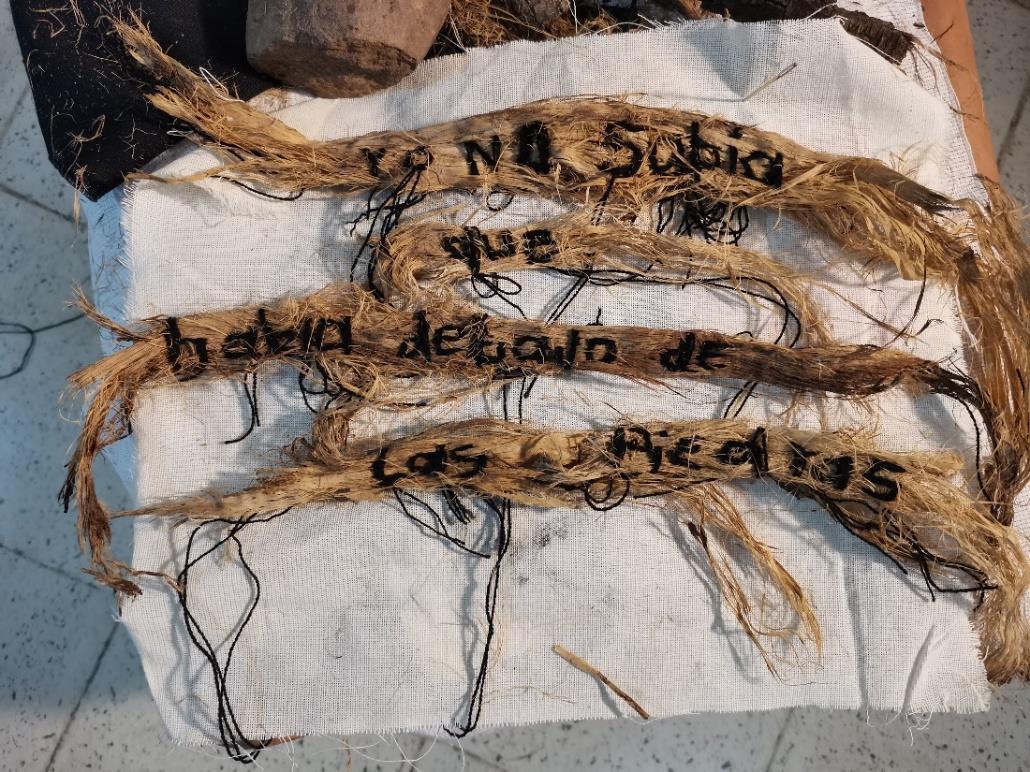 Yo NO Sabia
que
habia debajo de
Las Piedras